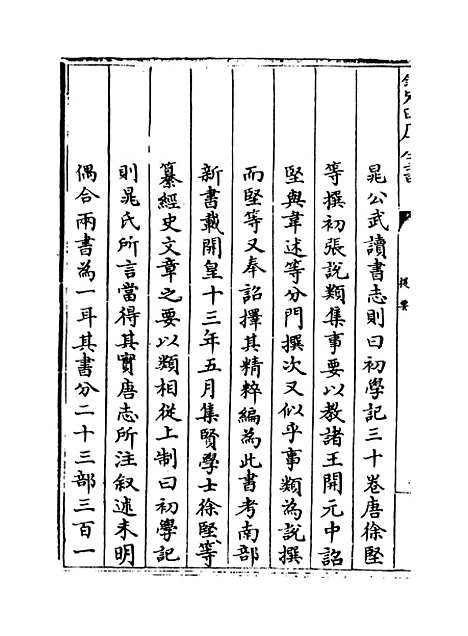 晁公武讀書志則曰初學記三十卷唐徐堅
等撰初張說類集事要以教諸王開元中詔
堅與韋述等分門撰次又似乎事類為說撰
而堅等又奉詔擇其精粹編為此書考南部
新書載開皇十三年五月集賢學士徐堅等
纂經史文章之要以類相從上制曰初學記
則晁氏所言當得其實唐志所注叙述未明
偶合兩書為一耳其書分二十三部三百一
提要